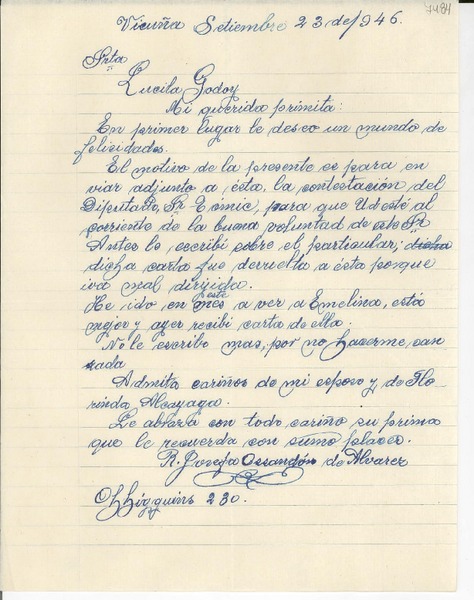 7484
Vicuña Setiembre 23 de/946.
Srta
Lucila Godoy
Mi querida primita:
En primer lugar le deseo un mundo de
felicidades.
El motivo de la presente es para en
viar adjunto a ésta, la contestación del
Diputado, Sr Tomic, para que Ud esté al
corriente de la buena voluntad de este Sr
Antes le escribí sobre el particular; dicha
dicha carta fue devuelta a ésta porque
iva mal dirijida.
He ido en este mes a ver a Emelina, está
mejor y ayer recibí carta de ella.
No le escribo mas, por no hacerme can
sada
Admita cariños de mi esposo y de Flo
rinda Alcayaga.
Le abraza con todo cariño su prima
que le recuerda con sumo placer.
R. Josefa Ossandón de Alvarez
O'Higguins 230.